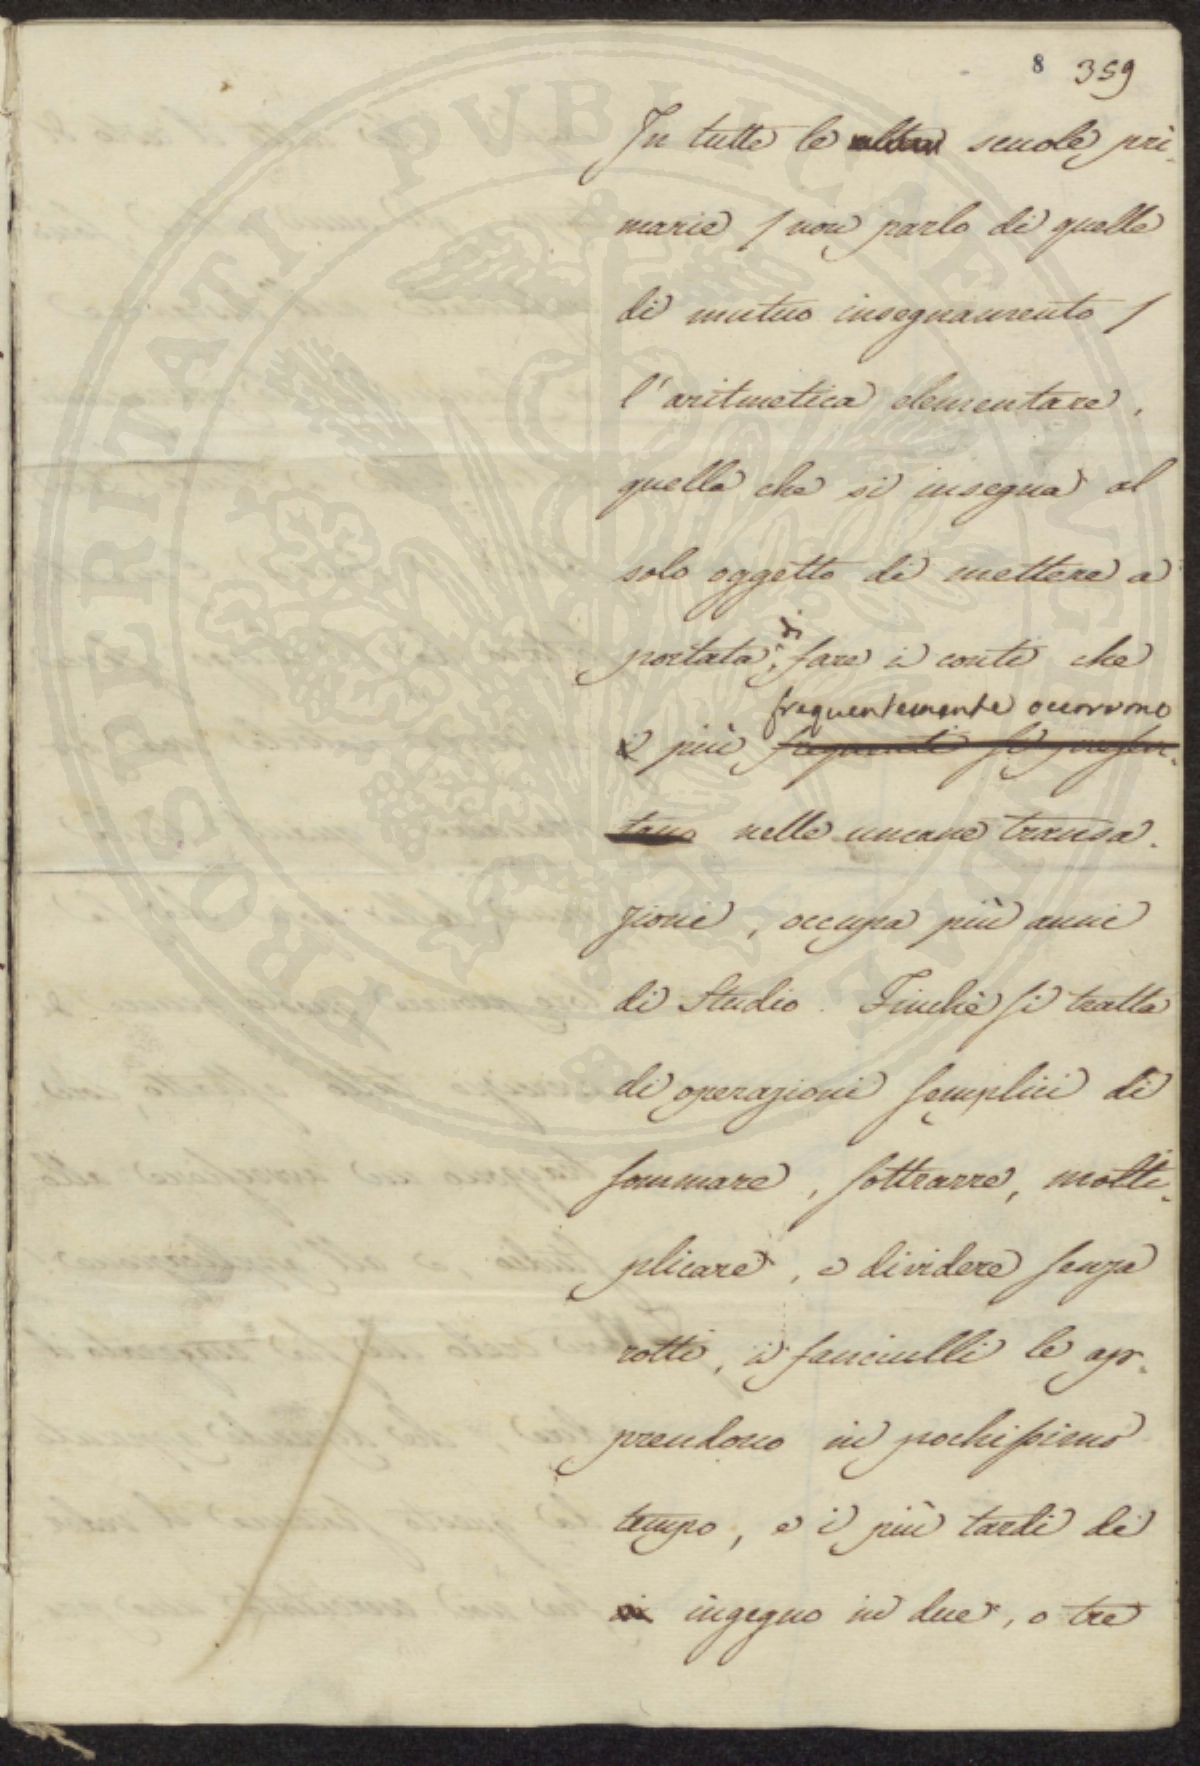 8 359
In tutte le altre scuole pri-
marie / non parlo di quelle
di mutuo insegnamento /
l'aritmetica elementare,
quella che si insegna al
solo oggetto di mettere a
di
portata, fare i conti che
frequentemente occorrono
i più frequenti si presen-
tano nelle umane transa-
zioni, occupa più anni
di Studio. Finchè si tratta
di operazioni semplici di
sommare, sottrarre, molti-
plicare, e dividere senza
rotti, i fanciulli le ap-
prendono in pochissimo
tempo, e i più tardi di
ingegno in due, o tre
PROSPERITATI PVBLICAE AVGENDAE